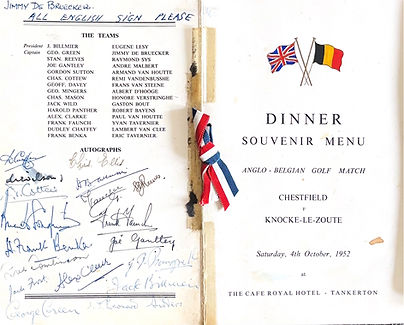 JIMMY DE BRUECKER.
ALL ENGLISH SIGN PLEASE
THE TEAMS
President J. BILLMIER EUGENE LESY
Captain GEO. GREEN JIMMY DE BRUECKER
STAN. REEVES RAYMOND SYS
JOE GANTLEY ANDRE MALBERT
GORDON SUTTON ARMAND VAN HOUTTE
CHAS. COTTEN REMI VANDENBUSSHE
GEOFF. DALE FRANS VAN STEENE
GEO. MINGES ALBERT D'HOOGE
CHAS. MASON HONORE VERSTRINGHE
JACK WILD GASTON BOUT
HAROLD PANTHER ROBERT BAYENS
ALEX. CLARKE PAUL VAN HOUTTE
FRANK FAUNCH YVAN TAVERNIER
DUDLEY CHAFFEY LAMBERT VAN CLEE
FRANK BENKA ERIC. TAVERNIER
AUTOGRAPHS
Frank Faunch
H. Frank Benka
Joe Gantley
Jack Billmier
George Green
DINNER
SOUVENIR MENU
ANGLO - BELGIAN GOLF MATCH
CHESTFIELD
v
KNOCKE-LE-ZOUTE
Saturday, 4th October, 1952
at
THE CAFE ROYAL HOTEL - TANKERTON